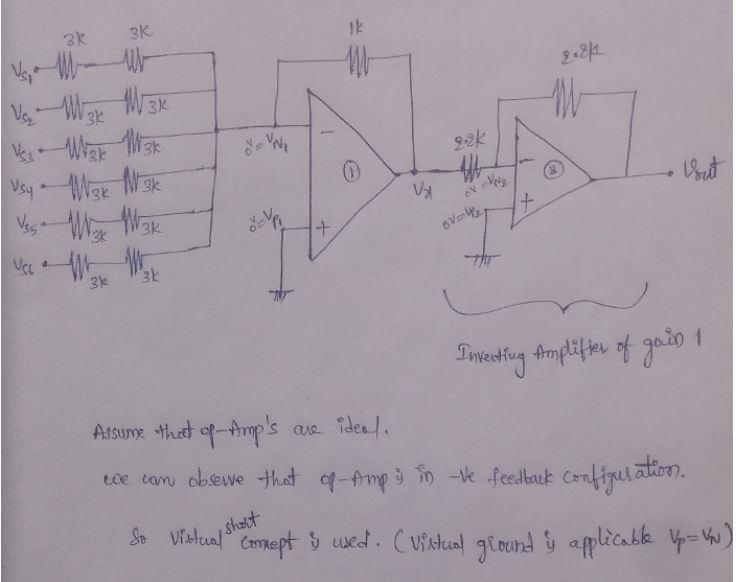 3k 3k
Vs1
Vs2 3k 3k
Vs3 3k 3k
Vs4 3k 3k
Vs5 3k 3k
Vs6 3k 3k
1k
0V = VN1 −
①
0V = VP1 +
Vx
2.2k
2.2k
0V = VN2 −
②
0V = VP2 +
Vout
Inverting Amplifier of gain 1
Assume that op-Amp's are ideal.
we can observe that op-Amp is in -ve feedback configuration.
So Virtual short concept is used. (Virtual ground is applicable Vp = VN)